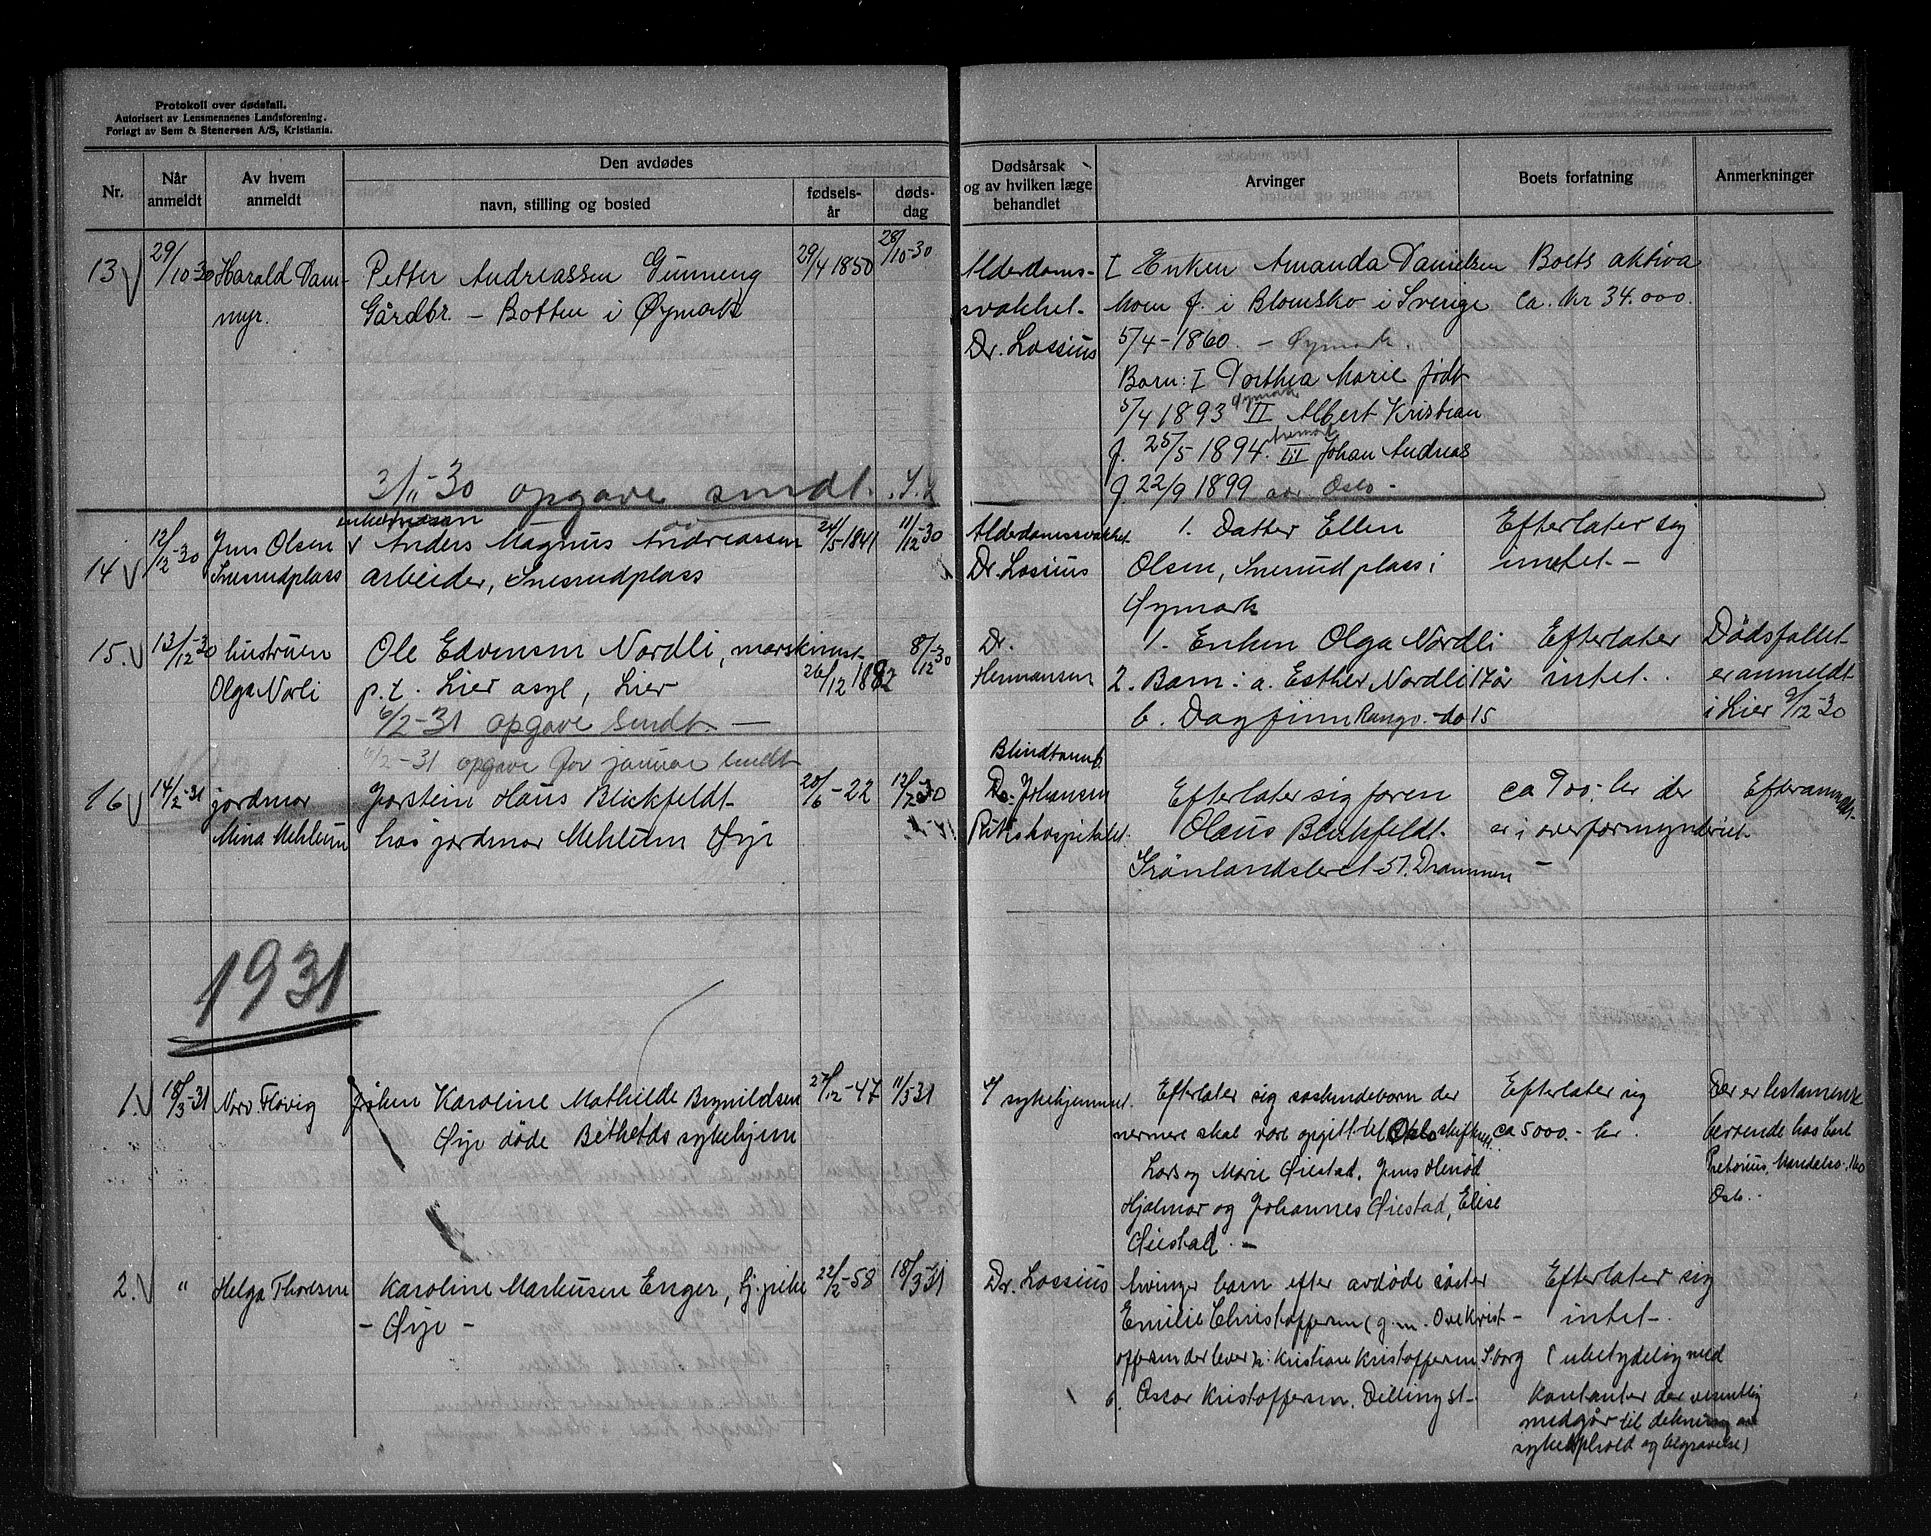 Protokoll over dødsfall.
Autorisert av Lensmennenes Landsforening.
Forlagt av Sem & Stenersen A/S, Kristiania.
Nr.
Når anmeldt
Av hvem anmeldt
Den avdødes
navn, stilling og bosted
fødsels-år
døds-dag
Dødsårsak og av hvilken læge behandlet
Arvinger
Boets forfatning
Anmerkninger
13 29/10-30 Harald Dam-
myr.
Petter Andreassen Gunneng
Gårdbr. – Botten i Øymark
29/4 1850
28/10-30
Alderdoms-
svakhet.
Dr. Lossius
I Enken Amanda Danielsen
Moen f. i Blomsko i Sverige
5/4-1860. – Øymark.
Barn: I Dorthea Marie født
5/4 1893 Øymark II Albert Kristian
f. 25/5-1894. Aremark III Johan Andreas
f 22/9 1899 Oslo –
Boets aktiva
ca. kr 34.000.
3/11-30 opgave sendt.
14 12/12-30 Jens Olsen
Snesrudplass
enkemann
Anders Magnus Andreassen
arbeider, Snesrudplass
24/5-1841
11/12-30
Alderdomssvakhet
Dr. Lossius
1. Datter Ellen
Olsen, Snesrudplass i
Øymark
Efterlater sig
intet –
15. 13/12-30 hustruen
Olga Norli
Ole Edvensen Nordli,
p.t. Lier asyl, Lier
26/12 1882
8/12-30
Dr.
Hermansen
1. Enken Olga Nordli
2. Barn: a. Esther Nordli 17 år
b. Dagfinn – do 15
Efterlater
intet.
Dødsfallet
er anmeldt
i Lier 9/12-30
6/2-31 opgave sendt. –
6/2-31 opgave for januar sendt
16 14/2-31 jordmor
Mina Mehlum
Jorstein Hans Blickfeldt
hos jordmor Mehlum Ørje
20/6-22
12/2-30
Blindtarmb.
Dr. Johansen
Rikshospitalet.
Efterlater sig faren
Olaus Blickfeldt.
Grønlandsleret 57. Drammen
ca 900.- kr der
er i overformynderiet
–
Efteranmeldt.
1931
1. 18/3-31 Norv Flovig
frøken Karoline Mathilde Brynildsen
Ørje døde Bethelds sykehjem
27/12-47
11/3-31
sykehjemmet.
Efterlater sig søskendebarn der
nermere skal vore opgitt til Oslo skifterett.
Lars og Marie Øiestad, Jens Henød
Hjalmar og Johannes Øiestad, Elise
Øiestad. –
Efterlater sig
ca 5000.- kr.
Der er testamente
beroende hos
Pretorius, 
Oslo.
2. " Helga Thoresen
Karoline Markusen Enger, tj. pike
– Ørje –
22/2-58
18/3-31
Dr. Lossius
Arvinger barn efter avdøde søster
Emilie Christoffersen (g.m. Ove Krist-
offersen der lever: Kristiane Kristoffersen S.borg
b. Oscar Kristoffersen. Dilling st.
Efterlater sig
intet.
( ubetydelig med
kontanter der vesentlig
medgår til dekning av
sykehphold og begravelse)